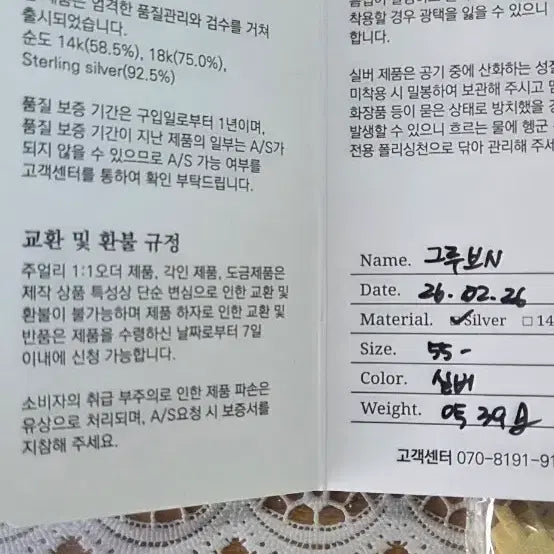 제품은 엄격한 품질관리와 검수를 거쳐
출시되었습니다.
순도 14k(58.5%), 18k(75.0%),
Sterling silver(92.5%)
품질 보증 기간은 구입일로부터 1년이며,
품질 보증 기간이 지난 제품의 일부는 A/S가
되지 않을 수 있으므로 A/S 가능 여부를
고객센터를 통하여 확인 부탁드립니다.
교환 및 환불 규정
주얼리 1:1오더 제품, 각인 제품, 도금제품은
제작 상품 특성상 단순 변심으로 인한 교환 및
환불이 불가능하며 제품 하자로 인한 교환 및
반품은 제품을 수령하신 날짜로부터 7일
이내에 신청 가능합니다.
소비자의 취급 부주의로 인한 제품 파손은
유상으로 처리되며, A/S요청 시 보증서를
지참해 주세요.
착용할 경우 광택을 잃을 수 있으니
합니다.
실버 제품은 공기 중에 산화하는 성질
미착용 시 밀봉하여 보관해 주시고
화장품 등이 묻은 상태로 방치했을
발생할 수 있으니 흐르는 물에 헹군
전용 폴리싱천으로 닦아 관리해 주세
Name. 그루브N
Date. 26.02.26
Material. Silver 14
Size. 55-
Color. 실버
Weight. 약 39g
고객센터 070-8191-91